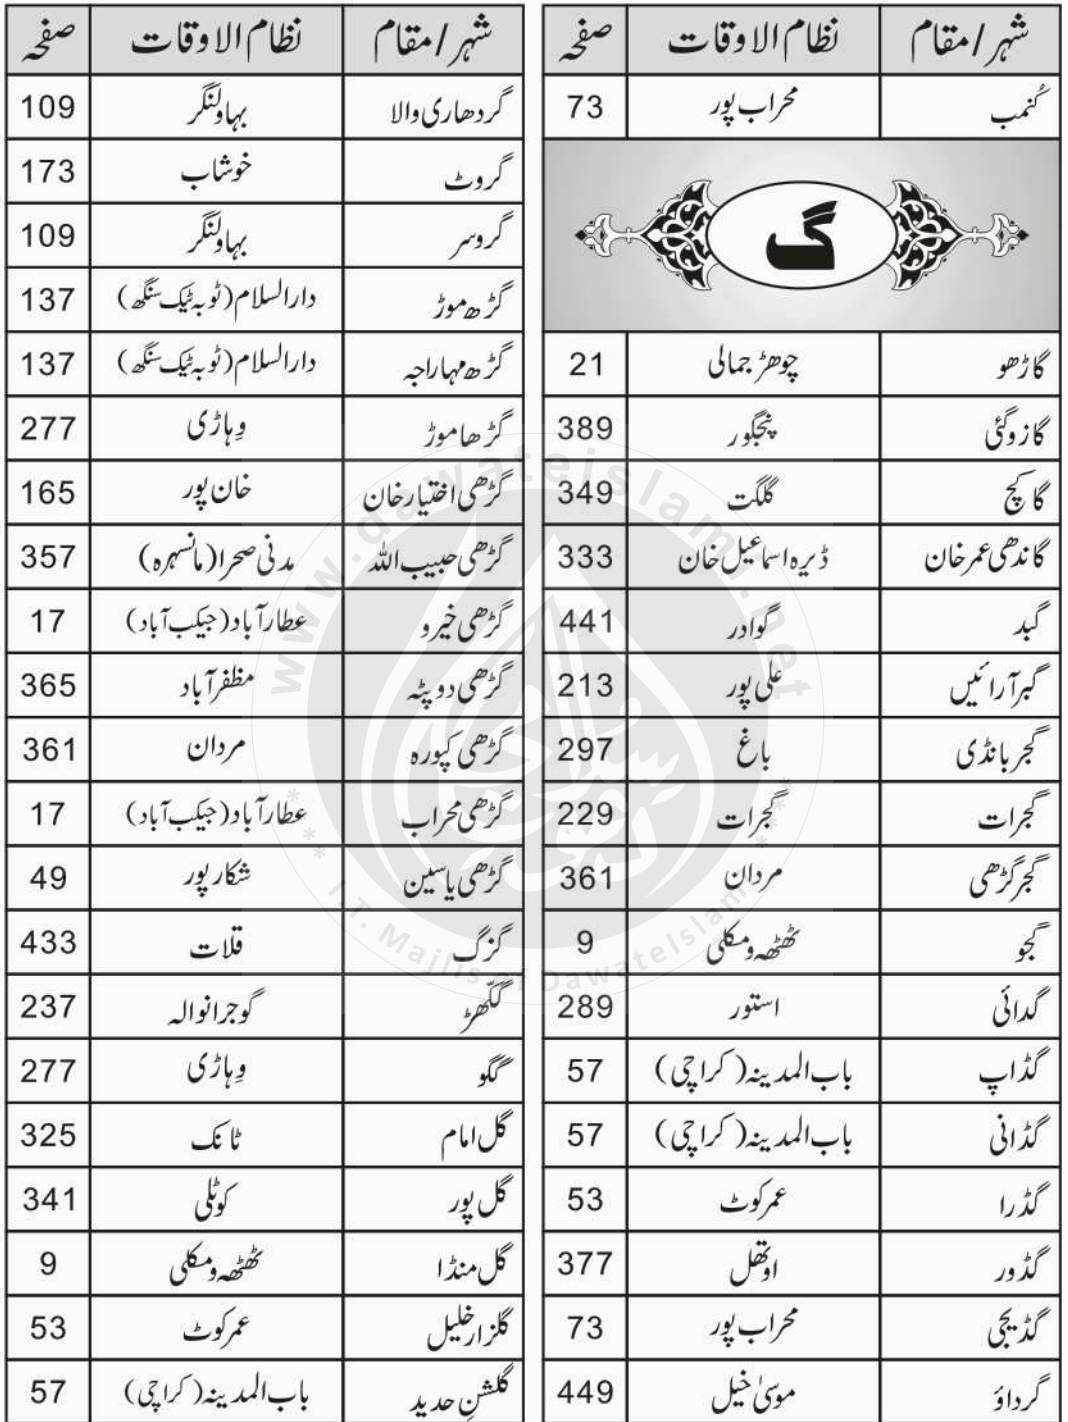 شہر/مقام نظام الاوقات صفحہ
کُنمب محراب پور 73
گ
گاڑھو چوھڑ جمالی 21
گازوگئی پنجگور 389
گاکچ گلگت 349
گاندھی عمر خان ڈیرہ اسماعیل خان 333
گبد گوادر 441
گبر آرائیں علی پور 213
گجر بانڈی باغ 297
گجرات گجرات 229
گجر گڑھی مردان 361
گجو ٹھٹھہ ومکلی 9
گدائی استور 289
گڈاپ باب المدینہ (کراچی) 57
گڈانی باب المدینہ (کراچی) 57
گڈرا عمر کوٹ 53
گڈور اوتھل 377
گڈیجی محراب پور 73
گرداؤ موسیٰ خیل 449
شہر/مقام نظام الاوقات صفحہ
گردھاری والا بہاولنگر 109
گروٹ خوشاب 173
گروسر بہاولنگر 109
گڑھ موڑ دارالسلام (ٹوبہ ٹیک سنگھ) 137
گڑھ مہاراجہ دارالسلام (ٹوبہ ٹیک سنگھ) 137
گڑھا موڑ وِہاڑی 277
گڑھی اختیار خان خان پور 165
گڑھی حبیب اللہ مدنی صحرا (مانسہرہ) 357
گڑھی خیرو عطار آباد (جیکب آباد) 17
گڑھی دوپٹہ مظفر آباد 365
گڑھی کپورہ مردان 361
گڑھی محراب عطار آباد (جیکب آباد) 17
گڑھی یاسین شکار پور 49
گزگ قلات 433
گکّھڑ گوجرانوالہ 237
گگو وِہاڑی 277
گل امام ٹانک 325
گل پور کوٹلی 341
گل منڈا ٹھٹھہ ومکلی 9
گلزار خلیل عمر کوٹ 53
گلشنِ حدید باب المدینہ (کراچی) 57
www.dawateislami.net
I.T. Majlis of DawateIslami